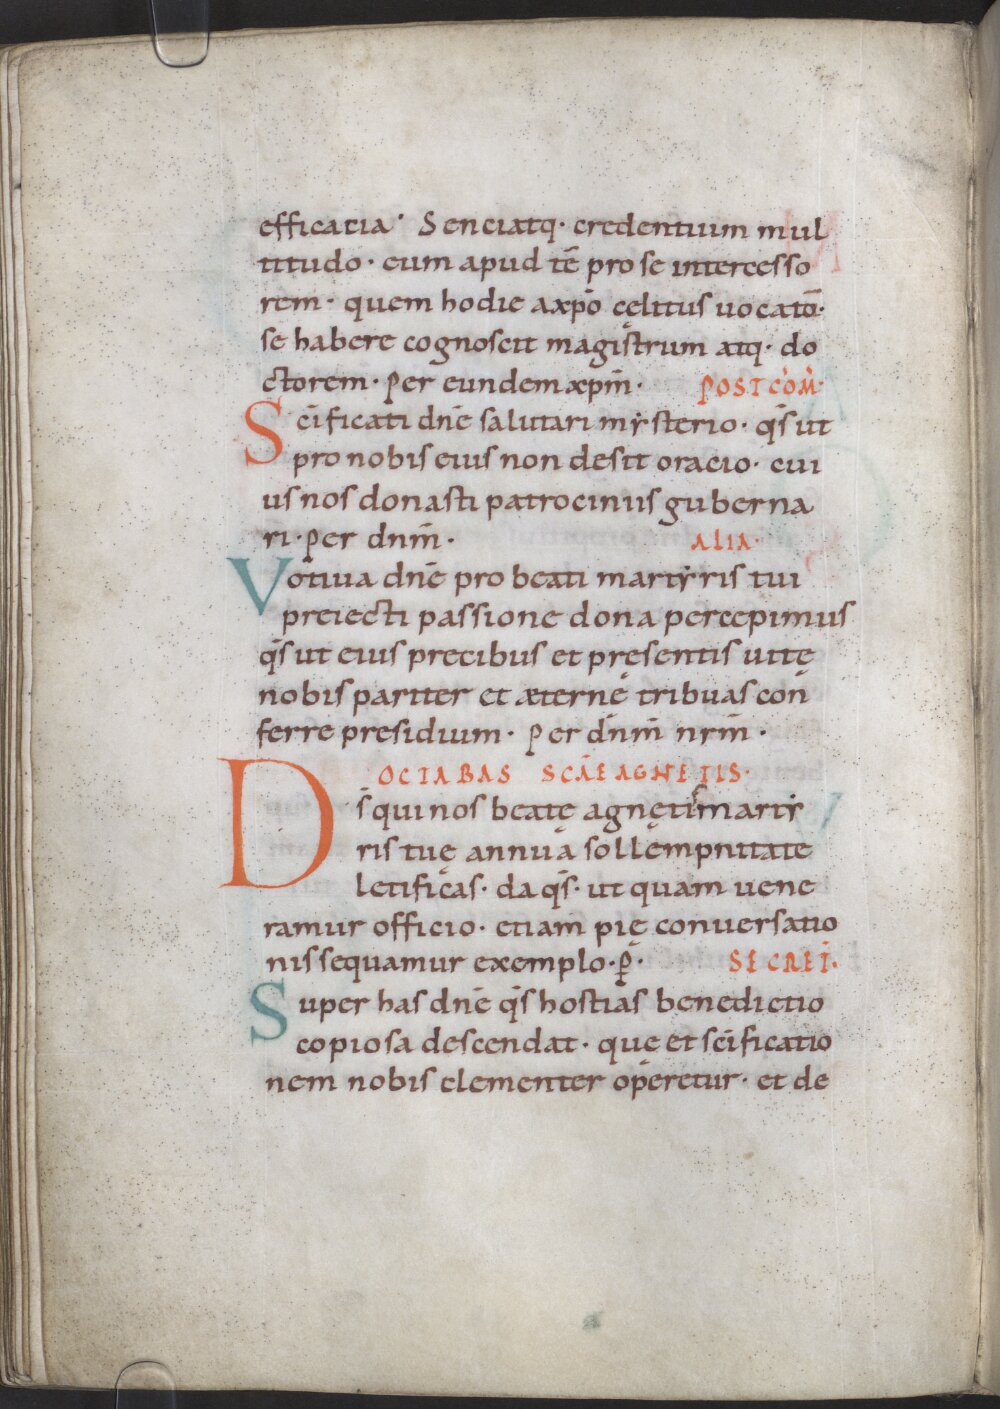 efficacia· Senciatq· credentium mul
titudo· eum apud tē pro se intercesso
rem· quem hodie a xp̄o cęlitus uocatū·
se habere cognoscit magistrum atq· do
ctorem· Per eundem xp̄m̄· POST COM̄·
Scīficati dn̄e salutari mysterio· qs̄ ut
pro nobis eius non desit oracio· cui
us nos donasti patrociniis guberna
ri· Per dn̄m̄· ALIA·
Votiua dn̄e pro beati martyris tui
preiecti passione dona percepimus
qs̄ ut eius precibus et pręsentis uitę
nobis pariter et æternę tribuas con
ferre presidium· Per dn̄m̄ nr̄m̄·
OCTABAS SCĀE AGNETIS·
Ds̄ qui nos beatę agnętis martẏ
ris tuę annua sollempnitate
letificas· da qs̄· ut quam uene
ramur officio· etiam pię conuersatio
nis sequamur exemplo· P̱· SECRET̄·
Super has dn̄e qs̄ hostias benedictio
copiosa descendat· quę et scīficatio
nem nobis clementer operetur· et de